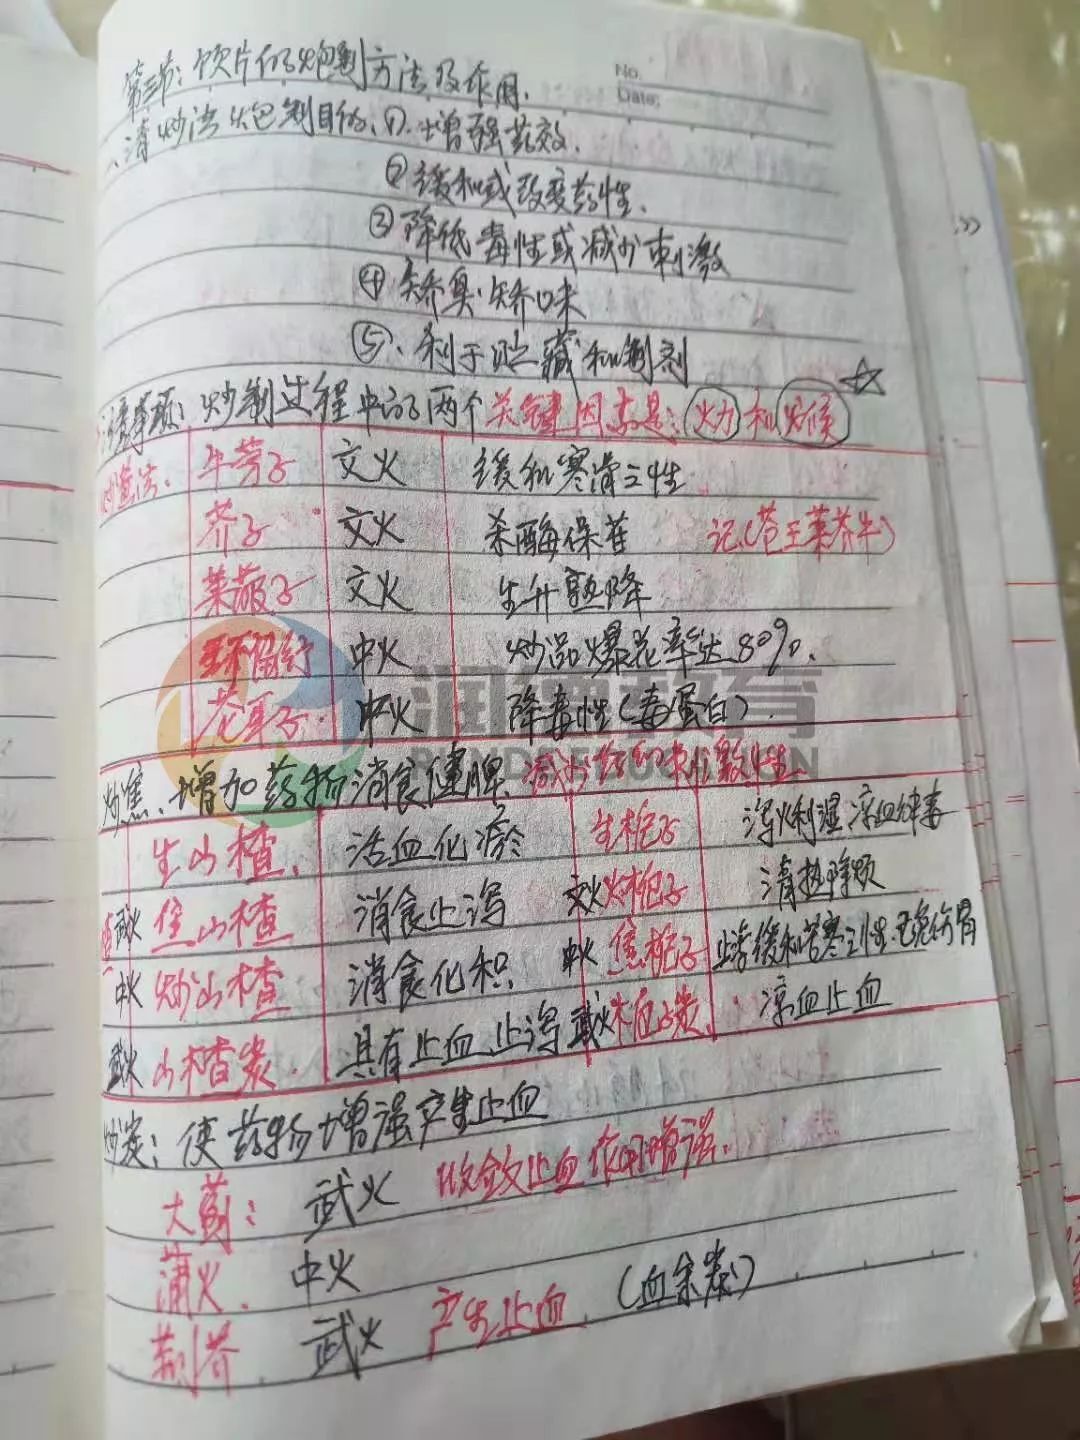 No.
Date:
第三节:饮片的炮制方法及作用.
一、清炒法炮制目的、①.增强药效.
②缓和或改变药性.
③降低毒性或减少刺激
④矫臭.矫味
⑤、利于贮藏和制剂
注意事项:炒制过程中的两个关键因素是:火力和火候
炒黄法. 牛蒡子 文火 缓和寒滑之性
芥子 文火 杀酶保苷 记(苍王莱芥牛)
莱菔子 文火 生升熟降
王不留行 中火 炒品爆花率达80%.
苍耳子. 中火 降毒性(毒蛋白).
润德教育
RUNDEEDUCATION
炒焦、增加药物消食健脾、减少药物刺激性.
生山楂. 活血化瘀 生栀子 泻火利湿凉血解毒
武火 焦山楂 消食止泻 文火 炒栀子 清热除烦
中火 炒山楂 消食化积. 中火 焦栀子 缓和苦寒之性.免伤胃
武火 山楂炭. 具有止血、止泻 武火 栀子炭. 凉血止血
炒炭:使药物增强产生止血
大蓟: 武火 收敛止血作用增强.
蒲火. 中火
荆芥 武火 产生止血 (血余炭)